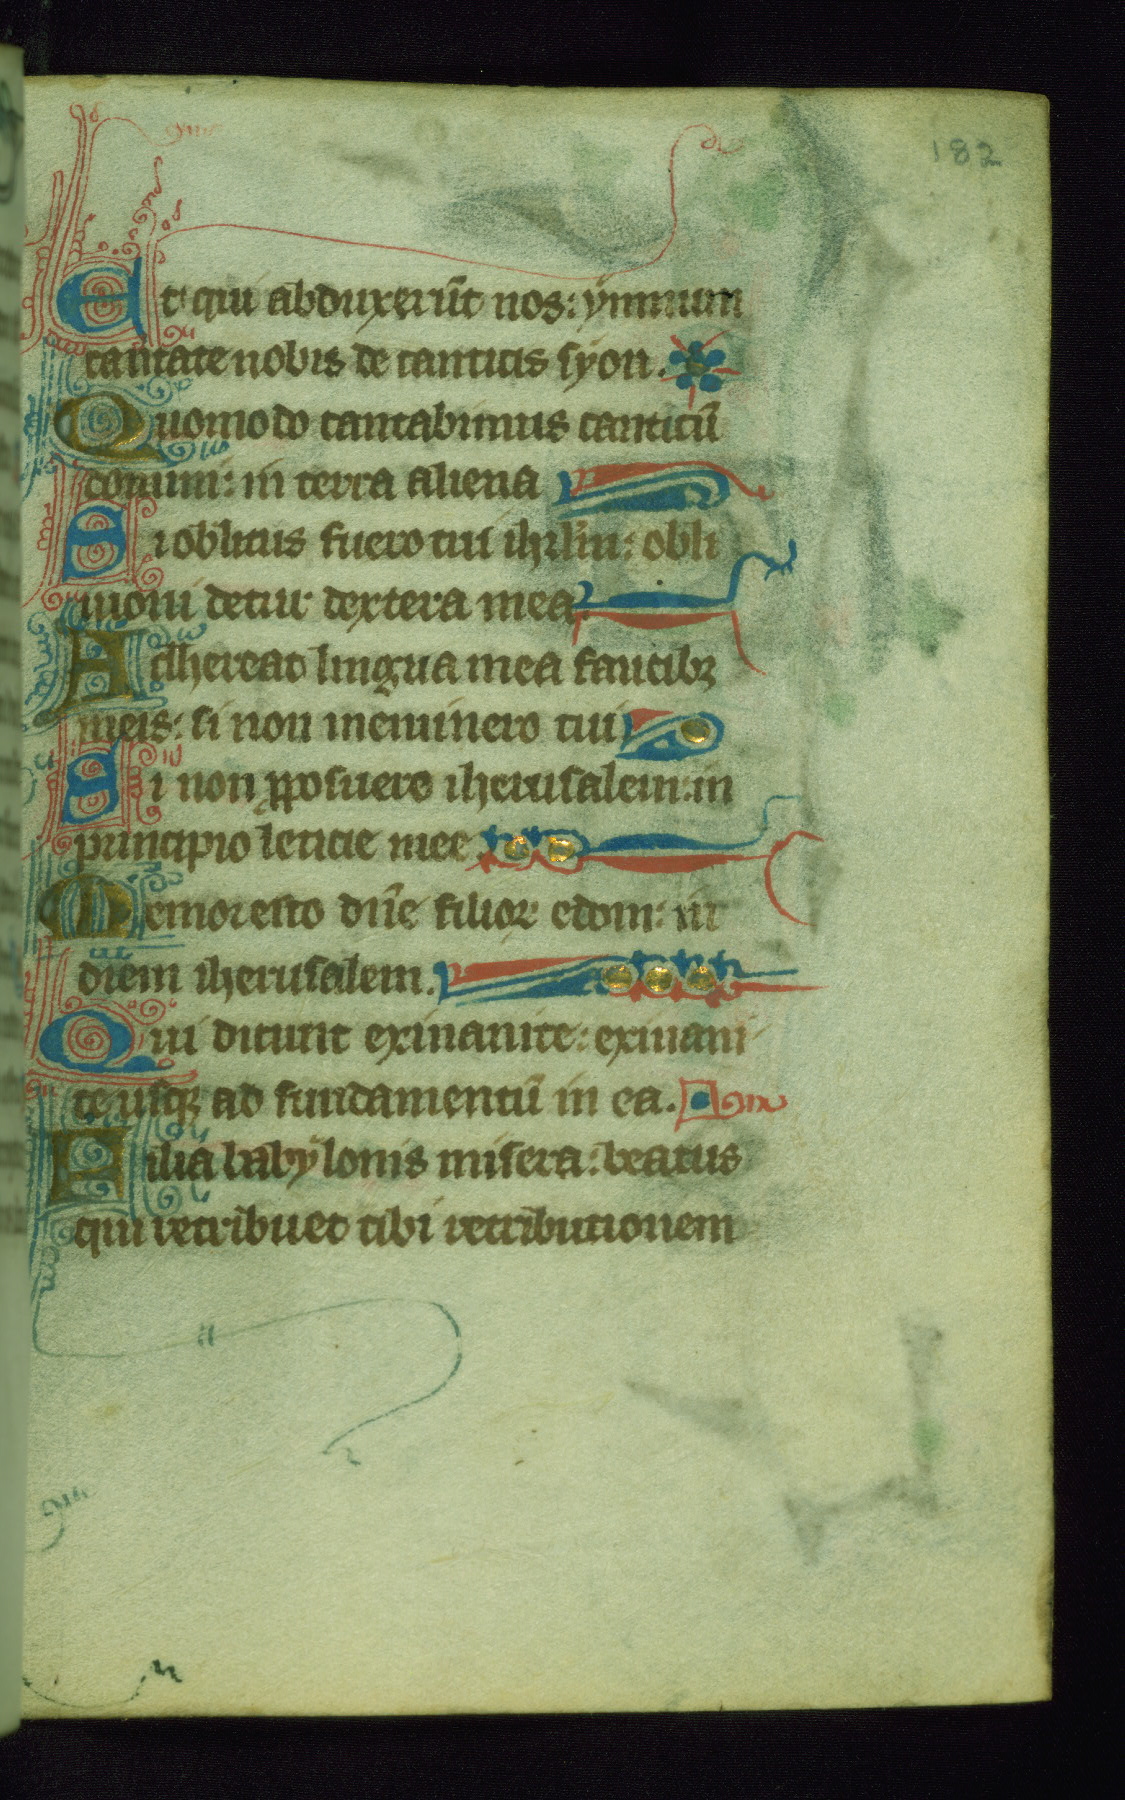 182
Et qui abduxerūt nos: ymnum
cantate nobis de canticis syon.
Quomodo cantabimus canticū
domini: in terra aliena
Si oblitus fuero tui ihrlm: obli
uioni detur dextera mea.
Adhereat lingua mea faucibꝫ
meis: si non meminero tui
Si non ꝓposuero iherusalem: in
principio leticie mee
Memor esto dn̄e filioꝝ edom: in
diem iherusalem.
Qui dicunt exinanite: exinani
te usqꝫ ad fundamentū in ea.
Filia babylonis misera: beatus
qui retribuet tibi retributionem